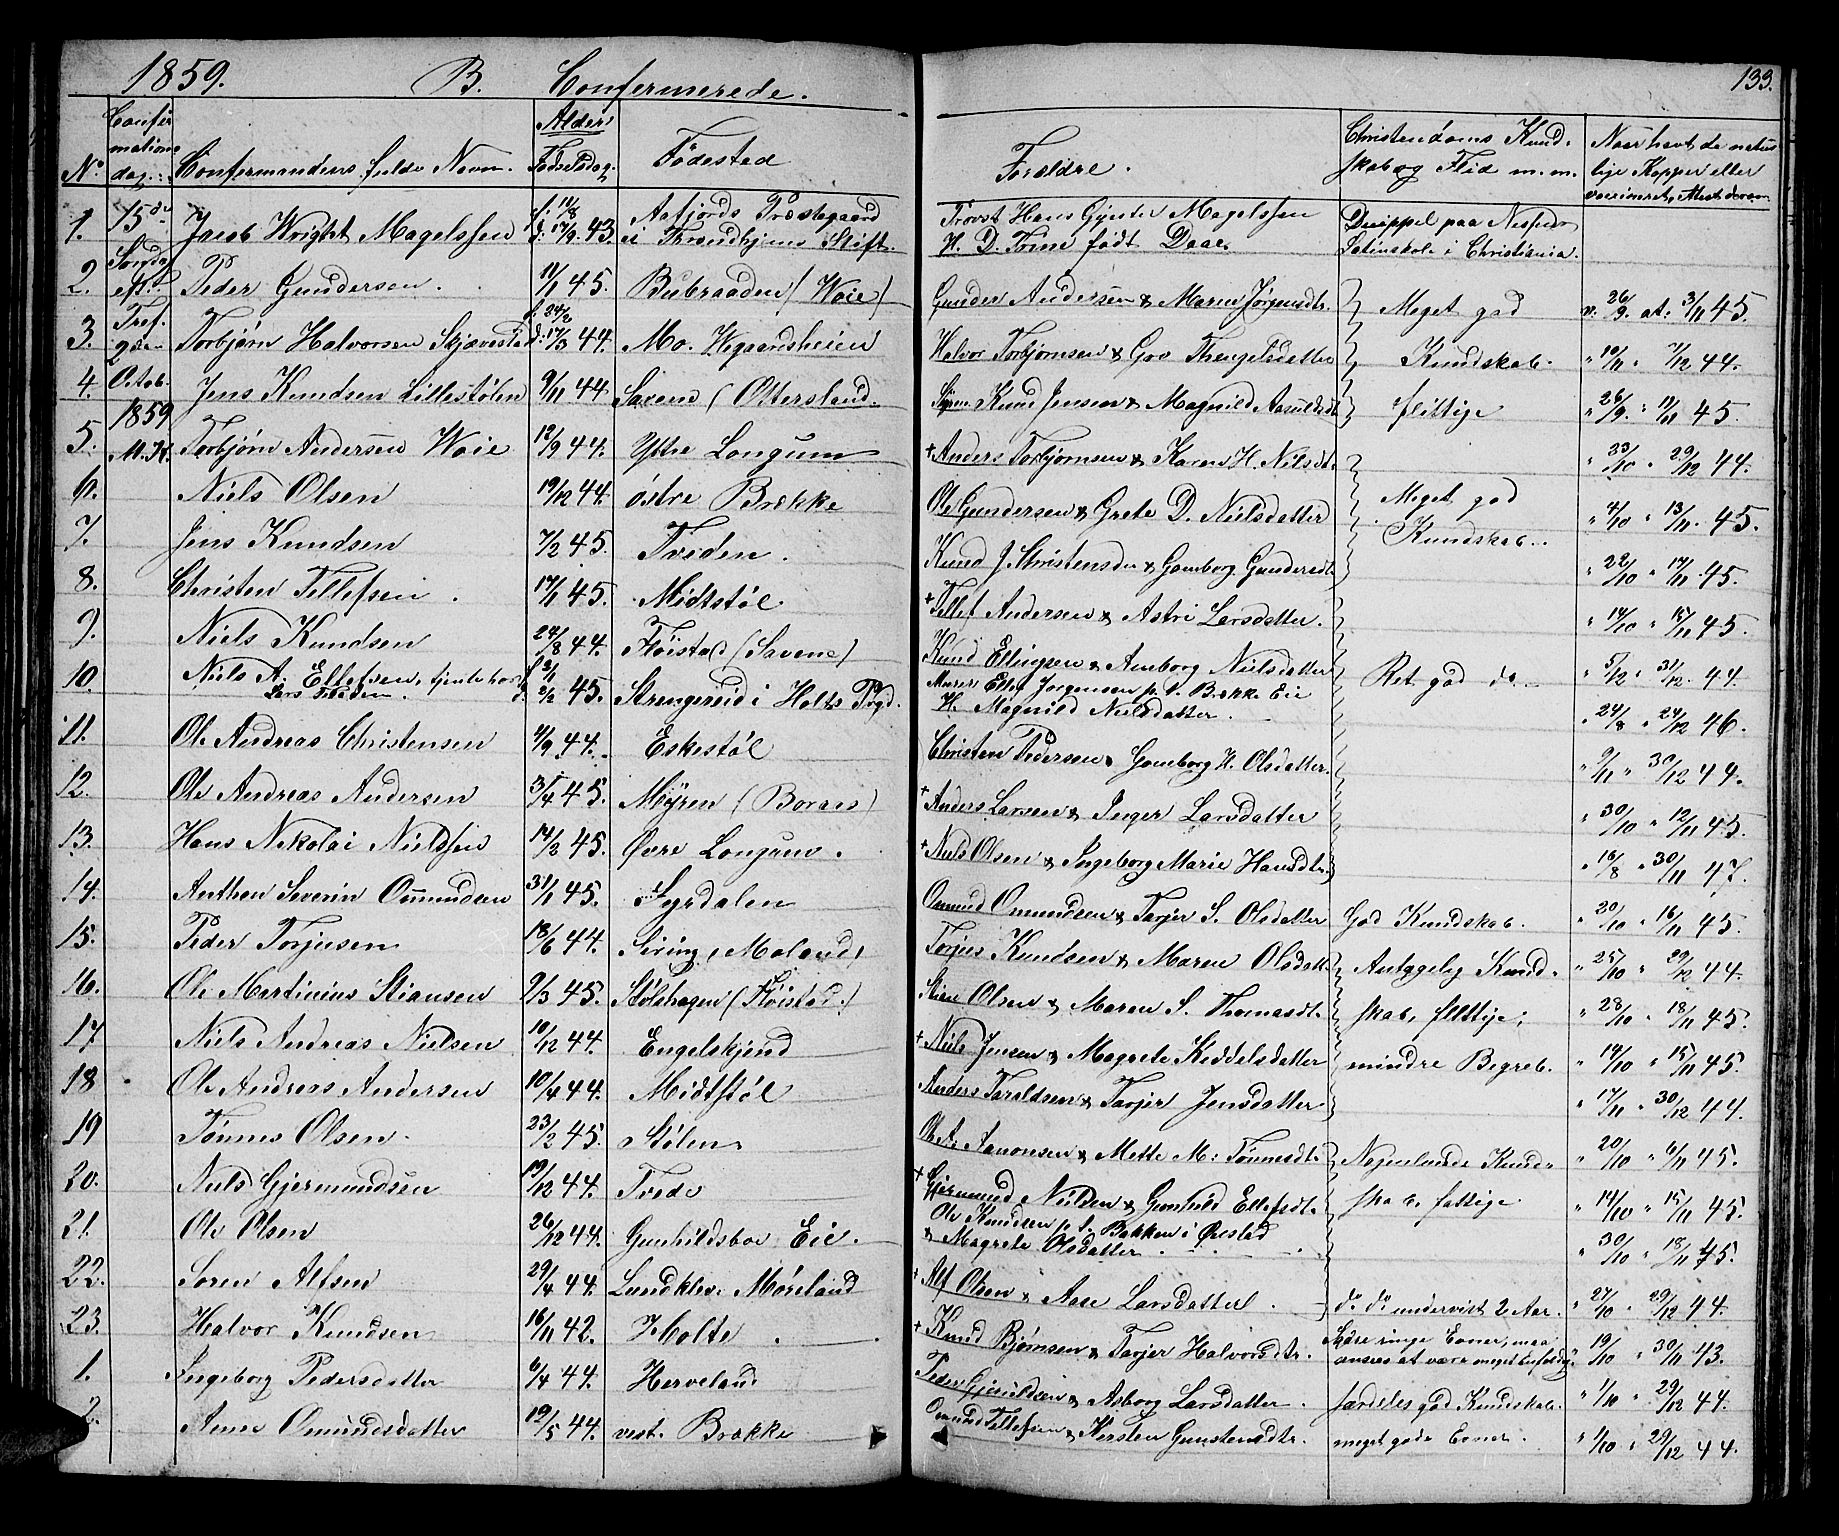 1859. B. Confermerede.
133.
No
Confir
mations
dag.
Confermandens fulde Navn.
Alder
Fødselsdag.
Fødested
Forældre.
Christendoms Kund-
skab og Flid m.m.
Naar havt de natur
lige Kopper eller
vaccineret, Attest derom
15de
Søndag
eft.
Tref.
2den
Octob.
1859
M. K.
1. Jacob Wright Magelssen f: 11/8 d: 17/9 43. Aafjords Præstegaard
i Trondhjems Stift.
Provst Hans Gynter Magelssen
H. D. Trine født Daae
Discippel paa Nissens
Latinskole i Christiania.
2. Peder Gundersen. 11/1 45. Bubraaden (Woie)
Gunder Andersen & Maren Jørgensdtr. Meget god v. 26/9. at. 3/11 45.
3. Torbjørn Halvorsen Skjævestad f. 24/2 d: 17/3 44. Mo. Wegaardsheien
Halvor Torbjørnsen & Gov Thengelsdatter Kundskab. " 10/11 " 7/12 44.
4. Jens Knudsen Lillestølen 9/11 44. Saxens (Ottersland.
Knud Jensen & Magnild Aasuldsdt. flittige " 26/9. " 11/11 45.
5. Torbjørn Andersen Woie 12/9 44. Yttre Longum
+ Anders Torbjørnsen & Karen H. Nilsdt. " 23/10 " 29/12 44.
6. Niels Olsen 19/12 44. østre Brække
Ole Gundersen & Grete D. Nielsdatter Meget god " 4/10 " 13/11. 45.
7. Jens Knudsen 7/2 45. Tveden.
Knud J. Christensen & Gunborg Gundersdt. Kundskab. " 22/10 " 17/11 45.
8. Christen Tellefsen. 17/1 45. Midtstøl
+ Tellef Andersen & Astri Larsdatter. " 14/10 " 15/11 45.
9. Niels Knudsen 24/8 44. Fløistad (Savene)
Knud Ellingsen & Anborg Nielsdatter Ret god do. " 5/12 " 31/12. 44.
10. Niels A. Ellefsen, tjente hos
Lars Tveden. f 3/1 d. 2/2 45. Strengereid i Holts Prgd.
Murer Ellef Jørgensen p. t. Brække Eie
H. Magnild Nielsdatter. " 24/8 " 24/12 46.
11. Ole Andreas Christensen 4/9 44. Eskestøl
Christen Pedersen & Gunborg H. Olsdatter. " 9/11 " 30/12 44.
12. Ole Andreas Andersen 3/4 45. Myren (Boraas)
+ Anders Larsen & Inger Larsdatter " 30/10 " 12/11 45.
13. Hans Nikolai Nielsen 14/2 45. Øvre Longum.
+ Niels Olsen & Ingeborg Marie Hansdtr. " 16/8 " 30/11 47.
14. Anthon Severin Ommundsen 31/1 45. Syrdalen
Omund Omundsen & Tarjer S. Olsdatter God Kundskab. " 20/10 " 16/11 45.
15. Peder Torjusen 18/6 44. Siring, Moland,
Torjus Knudsen & Maren Olsdatt. Antagelig Kund- " 25/10 " 29/12 44.
16. Ole Martinius Stiansen 9/3 45. Stølehagen (Fløistad.)
Stian Olsen & Maren S. Thomasdt. skab, flittige; " 28/10 " 18/11 45.
17 Niels Andreas Nielsen 10/12 44. Engelskjend
+ Niels Jensen & Magrete Keddelsdatter mindre Begreb. " 14/10 " 15/11 45.
18 Ole Andreas Andersen 10/4 44. Midtstøl
Anders Taraldsen & Tarjer Jensdatter " 17/11 " 30/12 44.
19 Tønnes Olsen. 23/2 45. Stølen
Ole A. Aanonsen & Mette M: Tønnesdt. Nogenlunde Kund- " 20/10 " 6/11 45.
20. Niels Gjermundsen 19/12 44. Tvede
+ Gjermund Nielsen & Gunhild Ellefsdt. skab. fattige. " 14/10 " 15/11 45.
21. Ole Olsen 26/12 44. Gunhildsboe Eie.
Ole Knudsen p. t. Bakken i Ørestad
& Magrete Olsdatter. " 30/10 " 18/11 45.
22. Søren Alfsen 29/4 44. Lundkleve Møreland
+ Alf Olsen & Aase Larsdatter. do do undervist 2 Aar. " 27/10 " 29/12 44.
23. Halvor Knudsen 16/11 42. Holte.
+ Knud Bjørnsen & Tarjer Halvorsdtr. ringe Evner, maa
ansees at være meget " 19/10 " 30/11 43.
1. Ingeborg Pedersdatter 6/4 44. Herveland
Peder Gjeruldsen & Asborg Larsdatter. særdeles god Kundskab. " 1/10 " 29/12 44.
2. Anne Omundsdatter 12/5 44. vest. Brække
Omund Tellefsen & Kersten Gunstensdtr. meget gode Evner. " 1/10 " 29/12 44.